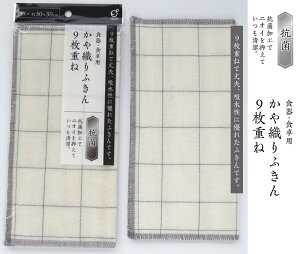 約30×30cm
食器・食卓用
かや織りふきん
9枚重ね
抗菌
抗菌加工で
ニオイを抑えて
いつも清潔。
9枚重ねで丈夫。吸水性に優れたふきんです。
抗菌
抗菌加工で
ニオイを抑えて
いつも清潔。
食器・食卓用
かや織りふきん
9枚重ね